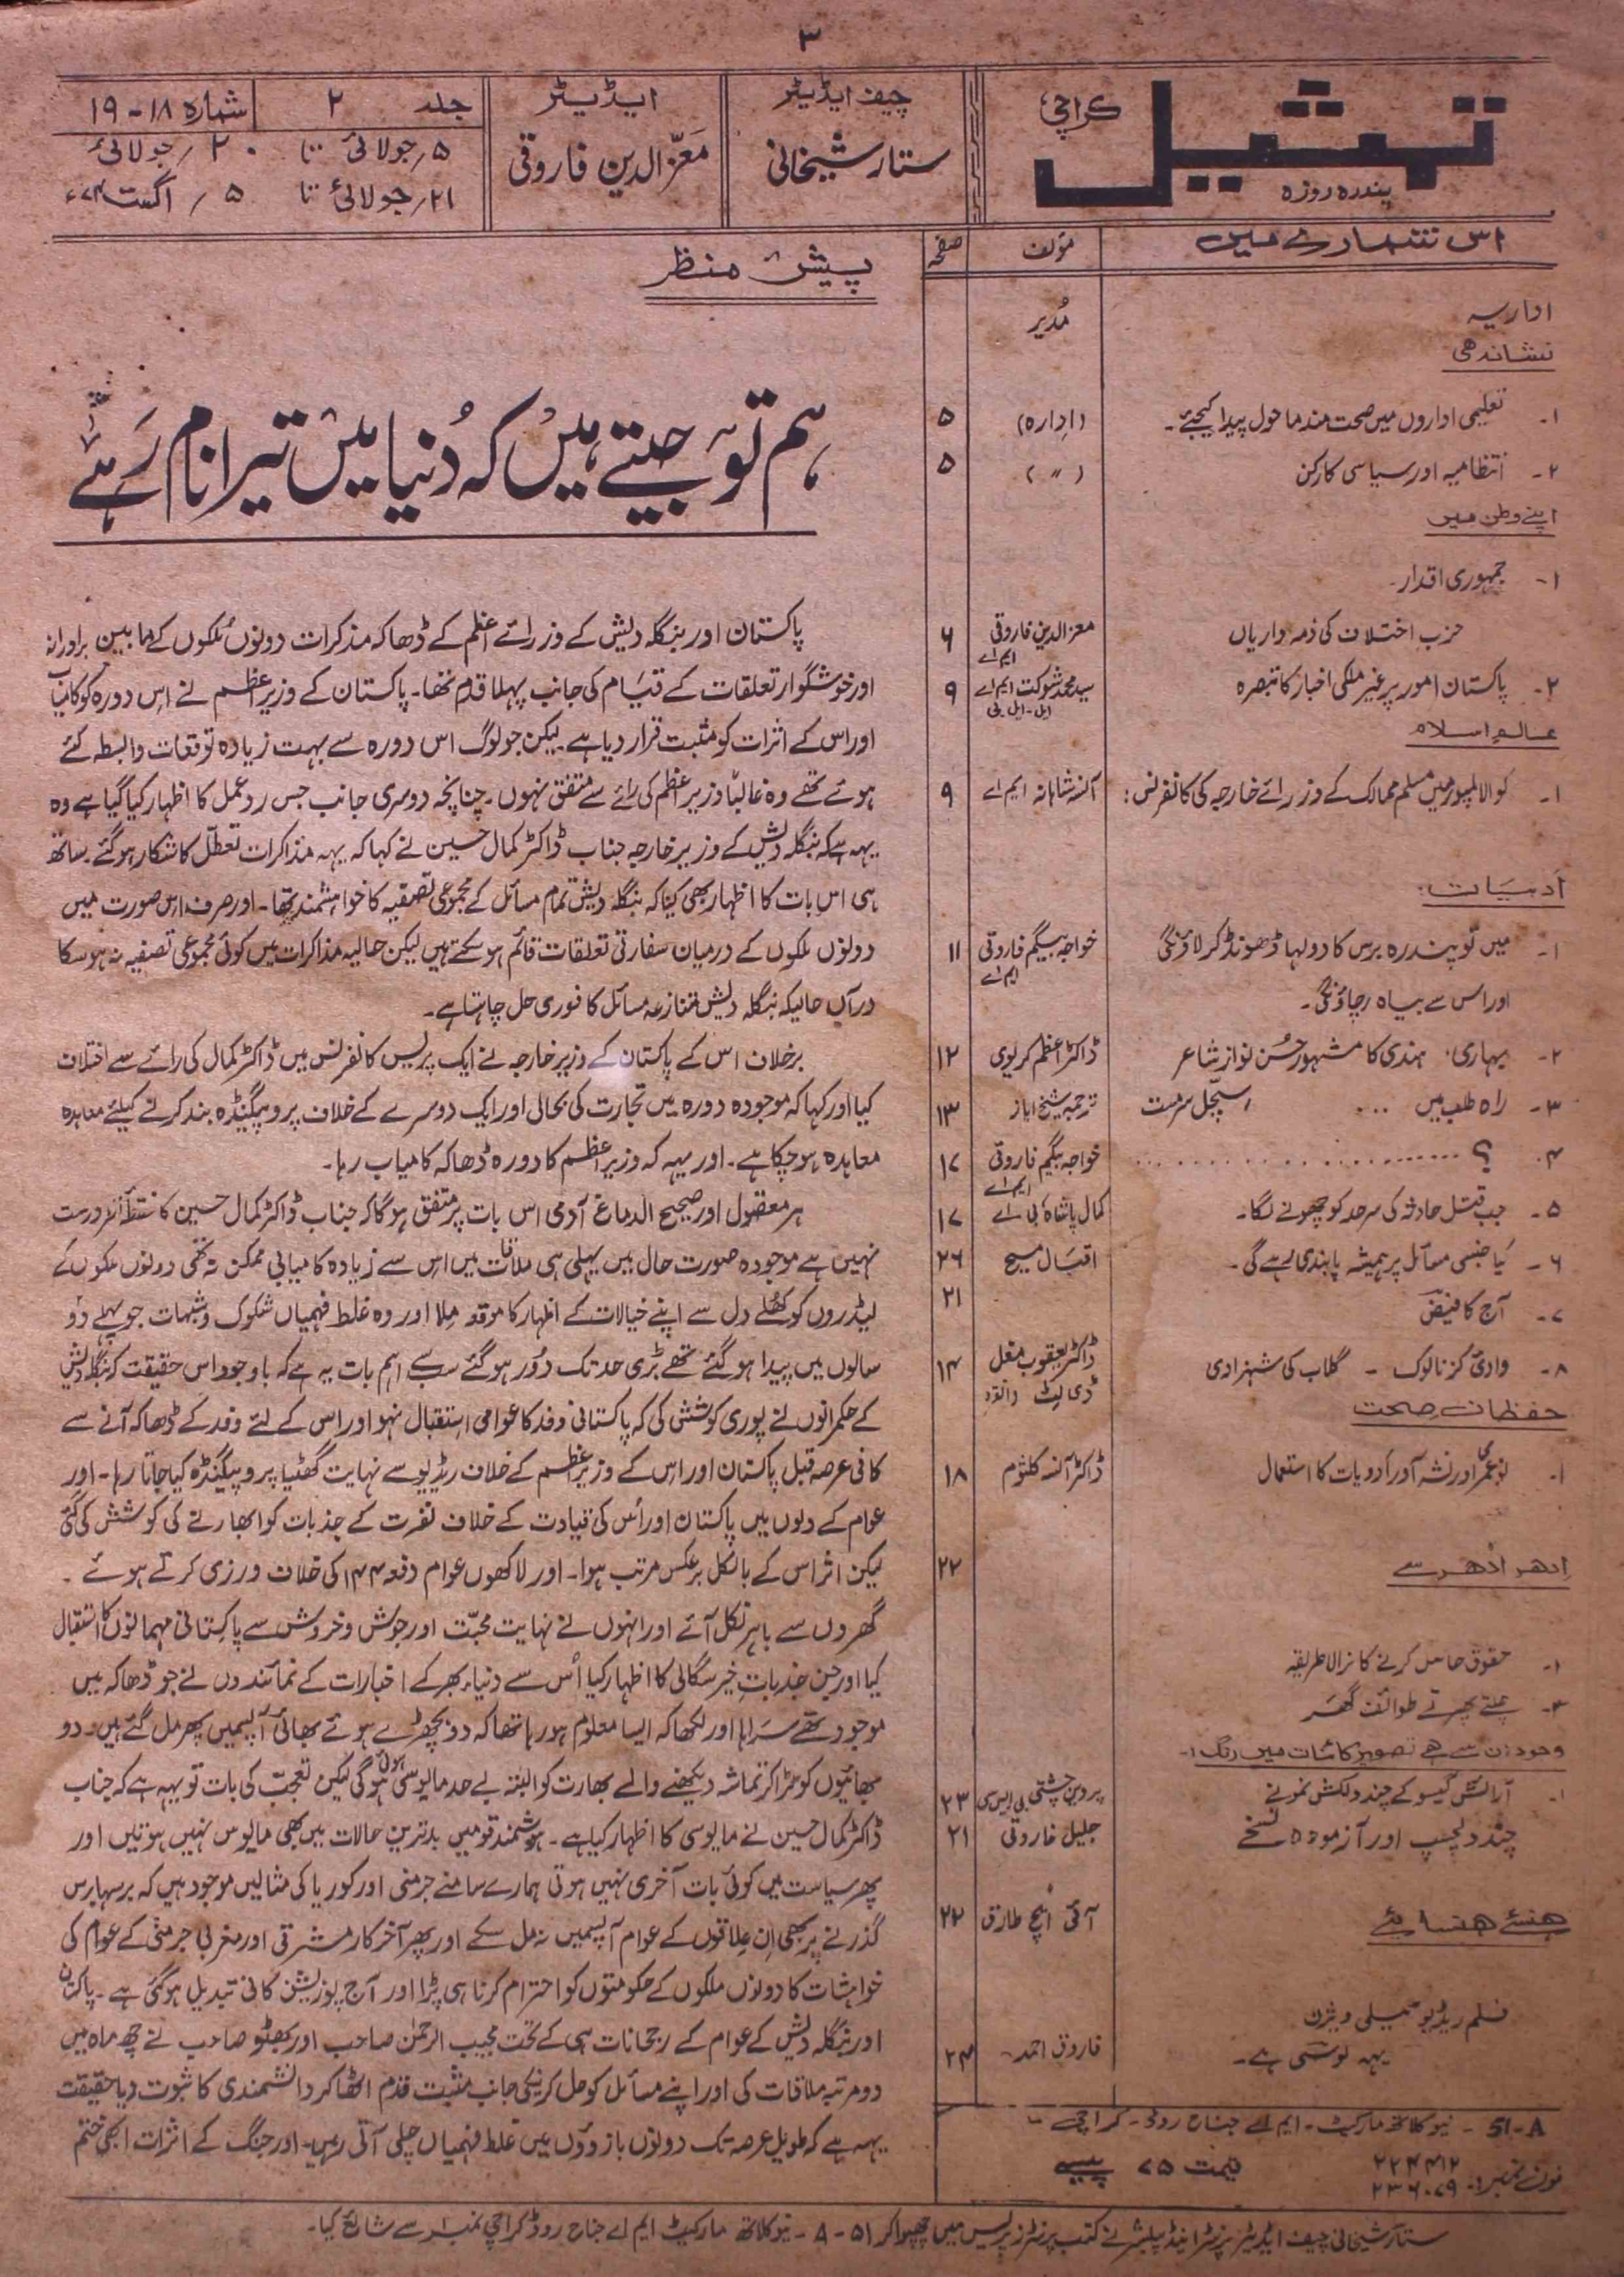 ۳
تمثیل
کراچی
پندرہ روزہ
چیف ایڈیٹر
ستار شیخانی
ایڈیٹر
معز الدین فاروقی
جلد ۲ شمارہ ۱۸-۱۹
۵؍جولائی تا ۲۰؍جولائی
۲۱؍جولائی تا ۵؍اگست ۷۴ء
اس شمارے میں مؤلف صفحہ
اداریہ مُدیر
نشاندهی
۱۔ تعلیمی اداروں میں صحت مند ماحول پیدا کیجئے۔ (ادارہ) ۵
۲۔ انتظامیہ اور سیاسی کارکن ( ״ ) ۵
اپنے وطن میں
۱۔ جمہوری اقدار۔
حزب اختلاف کی ذمہ داریاں معز الدین فاروقی ایم اے ۶
۲۔ پاکستان امور پر غیر ملکی اخبار کا تبصرہ سید محمد شوکت ایم اے ایل۔ایل بی ۹
عالم اسلام
۱۔ کوالالمپور میں مسلم ممالک کے وزرائے خارجہ کی کانفرنس: آنسہ شاہانہ ایم اے ۹
ادبیات:
۱۔ میں تو پندرہ برس کا دولہا ڈھونڈ کر لاؤنگی خواجہ بیگم فاروقی ایم اے ۱۱
اور اس سے بیاہ رچاؤنگی۔
۲۔ بہاری، ہندی کا مشہور حُسن نواز شاعر ڈاکٹر اعظم کریوی ۱۲
۳۔ راہ طلب میں ... سچل سرمست ترجمہ شیخ ایاز ۱۳
۴۔ ؟ .......... خواجہ بیگم فاروقی ایم اے ۱۷
۵۔ جب قتل حادثہ کی سرحد کو چھونے لگا۔ کمال پاشاہ بی اے ۱۷
۶۔ کیا جنسی مسائل پر ہمیشہ پابندی رہے گی۔ اقبال مسیح ۲۶
۷۔ آج کا فیض ۲۱
۸۔ وادیٔ کزنالوک - گلاب کی شہزادی ڈاکٹر یعقوب مغل ڈی لیٹ ۱۴
حفظان صحت
۱۔ نوعمری اور نشہ آور ادویات کا استعمال ڈاکٹر آنسہ کلثوم ۱۸
اِدھر اُدھر سے ۲۲
۱۔ حقوق حاصل کرنے کا نرالا طریقہ
۲۔ چلتے پھرتے طوائف گھر
وجود زن سے ہے تصویر کائنات میں رنگ :۔
۱۔ آرائش گیسو کے چند دلکش نمونے پروین چشتی بی ایس سی ۲۳
چند دلچسپ اور آزمودہ نسخے جلیل فاروقی ۲۱
ہنسئے ہنسائیے آئی ایچ طارق ۲۲
فلم ریڈیو ٹیلی ویژن
یہہ لوسی ہے۔ فاروق احمد ۲۴
51-A - نیو کلاتھ مارکیٹ۔ ایم اے جناح روڈ۔ کراچی
فون نمبر: ۲۲۴۴۱۲
۲۳۶۰۷۹
قیمت ۷۵ پیسے
پیش منظر
ہم تو جیتے ہیں کہ دُنیا میں تیرا نام رہے
پاکستان اور بنگلہ دیش کے وزرائے اعظم کے ڈھاکہ مذکرات دونوں مُلکوں کے مابین برادرانہ
اور خوشگوار تعلقات کے قیام کی جانب پہلا قدم تھا۔ پاکستان کے وزیر اعظم نے اس دورہ کو کامیاب
اور اس کے اثرات کو مثبت قرار دیا ہے۔ لیکن جو لوگ اس دورہ سے بہت زیادہ توقعات وابستہ کئے
ہوئے تھے وہ غالباً وزیر اعظم کی رائے سے متفق نہوں۔ چنانچہ دوسری جانب جس رد عمل کا اظہار کیا گیا ہے وہ
یہہ ہے کہ بنگلہ دیش کے وزیر خارجہ جناب ڈاکٹر کمال حسین نے کہا کہ یہہ مذاکرات تعطّل کا شکار ہو گئے۔ ساتھ
ہی اس بات کا اظہار بھی کیا کہ بنگلہ دیش تمام مسائل کے مجموعی تصفیہ کا خواہشمند تھا۔ اور صرف اس صورت میں
دونوں ملکوں کے درمیان سفارتی تعلقات قائم ہو سکتے ہیں لیکن حالیہ مذاکرات میں کوئی مجموعی تصفیہ نہ ہو سکا
درآں حالیکہ بنگلہ دیش متنازعہ مسائل کا فوری حل چاہتا ہے۔
برخلاف اس کے پاکستان کے وزیر خارجہ نے ایک پریس کانفرنس میں ڈاکٹر کمال کی رائے سے اختلاف
کیا اور کہا کہ موجودہ دورہ میں تجارت کی بحالی اور ایک دوسرے کے خلاف پروپیگنڈہ بند کرنے کیلئے معاہدہ
معاہدہ ہو چکا ہے۔ اور یہہ کہ وزیر اعظم کا دورہ ڈھاکہ کامیاب رہا۔
ہر معقول اور صحیح الدماغ آدمی اس بات پر متفق ہوگا کہ جناب ڈاکٹر کمال حسین کا نقطۂ نظر درست
نہیں ہے موجودہ صورت حال میں پہلی ہی ملاقات میں اس سے زیادہ کامیابی ممکن نہ تھی دونوں ملکوں کے
لیڈروں کو کھلے دل سے اپنے خیالات کے اظہار کا موقعہ ملا اور وہ غلط فہمیاں شکوک و شبہات جو پہلے دو
سالوں میں پیدا ہو گئے تھے بڑی حد تک دُور ہو گئے سب سے اہم بات یہ ہے کہ باوجود اس حقیقت کہ بنگلہ دیش
کے حکمرانوں نے پوری کوشش کی کہ پاکستانی وفد کا عوامی استقبال نہو اور اس کے لئے وفد کے ڈھاکہ آنے سے
کافی عرصہ قبل پاکستان اور اس کے وزیر اعظم کے خلاف ریڈیو سے نہایت گھٹیا پروپیگنڈہ کیا جاتا رہا۔ اور
عوام کے دلوں میں پاکستان اور اُس کی قیادت کے خلاف نفرت کے جذبات کو ابھارنے کی کوشش کی گئی
لیکن اثر اس کے بالکل برعکس مرتب ہوا۔ اور لاکھوں عوام دفعہ ۱۴۴ کی خلاف ورزی کرتے ہوئے ۔
گھروں سے باہر نکل آئے اور انہوں نے نہایت محبّت اور جوش و خروش سے پاکستانی مہمانوں کا استقبال
کیا اور جن جذبات خیر سگالی کا اظہار کیا اُس سے دنیاء بھر کے اخبارات کے نمائندوں نے جو ڈھاکہ میں
موجود تھے سراہا اور لکھا کہ ایسا معلوم ہو رہا تھا کہ دو بچھڑے ہوئے بھائی آپسمیں پھر مل گئے ہیں۔ دو
بھائیوں کو لڑا کر تماشہ دیکھنے والے بھارت کو البتہ بے حد مایوسی ہوئی ہوگی لیکن تعجب کی بات تو یہہ ہے کہ جناب
ڈاکٹر کمال حسین نے مایوسی کا اظہار کیا ہے۔ ہوشمند قومیں بدترین حالات میں بھی مایوس نہیں ہوتیں اور
پھر سیاست میں کوئی بات آخری نہیں ہوتی ہمارے سامنے جرمنی اور کوریا کی مثالیں موجود ہیں کہ برسہا برس
گذرنے پر بھی ان علاقوں کے عوام آپسمیں نہ مل سکے اور پھر آخر کار مشرقی اور مغربی جرمنی کے عوام کی
خواہشات کا دونوں ملکوں کے حکومتوں کو احترام کرنا ہی پڑا اور آج پوزیشن کافی تبدیل ہو گئی ہے۔ پاکستان
اور بنگلہ دیش کے عوام کے رجحانات ہی کے تحت مجیب الرحمٰن صاحب اور بھٹو صاحب نے چھ ماہ میں
دو مرتبہ ملاقات کی اور اپنے مسائل کو حل کرنیکی جانب مثبت قدم اٹھا کر دانشمندی کا ثبوت دیا حقیقت
یہہ ہے کہ طویل عرصہ تک دونوں بازوؤں میں غلط فہمیاں چلی آتی رہیں۔ اور جنگ کے اثرات ابھی ختم
ستار شیخانی چیف ایڈیٹر پرنٹر اینڈ پبلیشر نے کتب پرنٹرز پریس میں چھپوا کر ۵۱-A - نیو کلاتھ مارکیٹ ایم اے جناح روڈ کراچی نمبر۱ سے شائع کیا۔